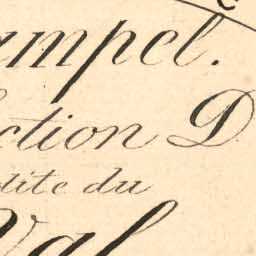 ampel.
ction D
dite du
Val